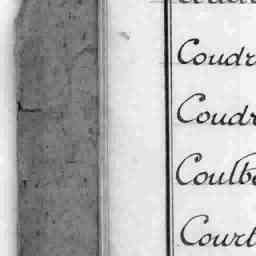 Coudr
Coudr
Coulb
Court